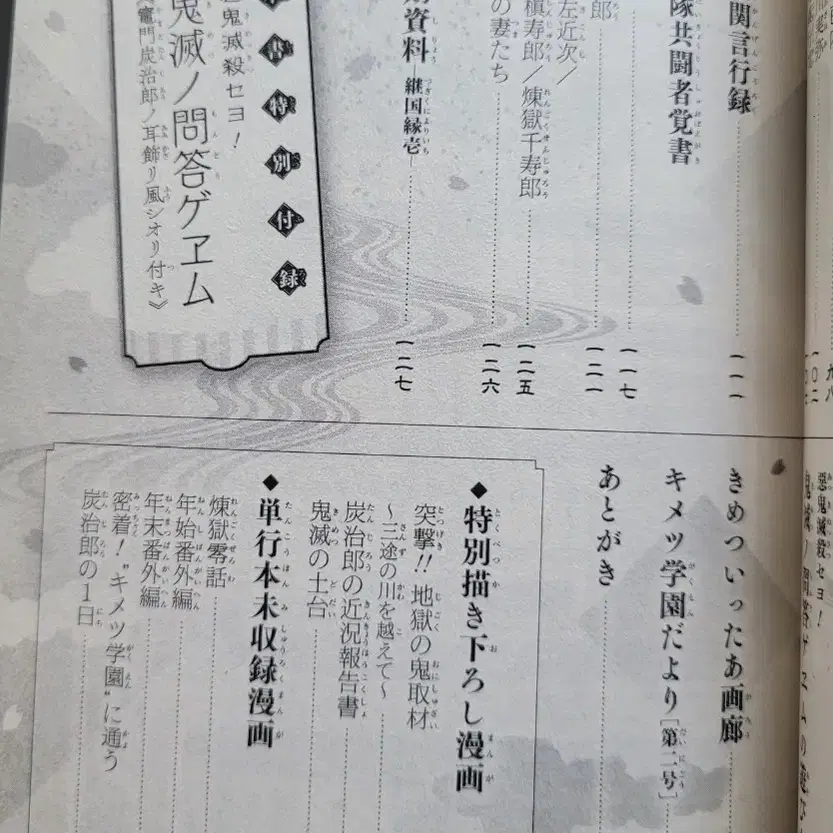 九八
一〇二
関言行録
一一一
隊共闘者覚書
一一七
郎
一二一
左近次／
槇寿郎／煉獄千寿郎
一二五
の妻たち
一二六
資料 継国縁壱
一二七
書特別付録
悪鬼滅殺セヨ！
鬼滅ノ問答ゲヱム
竈門炭治郎ノ耳飾リ風シオリ付キ》
惡鬼滅殺セヨ！
鬼滅ノ問答ゲヱムの遊び
きめついったあ画廊
キメツ学園だより［第二号］
あとがき
◆特別描き下ろし漫画
突撃!! 地獄の鬼取材
～三途の川を越えて～
炭治郎の近況報告書
鬼滅の土台
◆単行本未収録漫画
煉獄零話
年始番外編
年末番外編
密着！〝キメツ学園〟に通う
炭治郎の1日